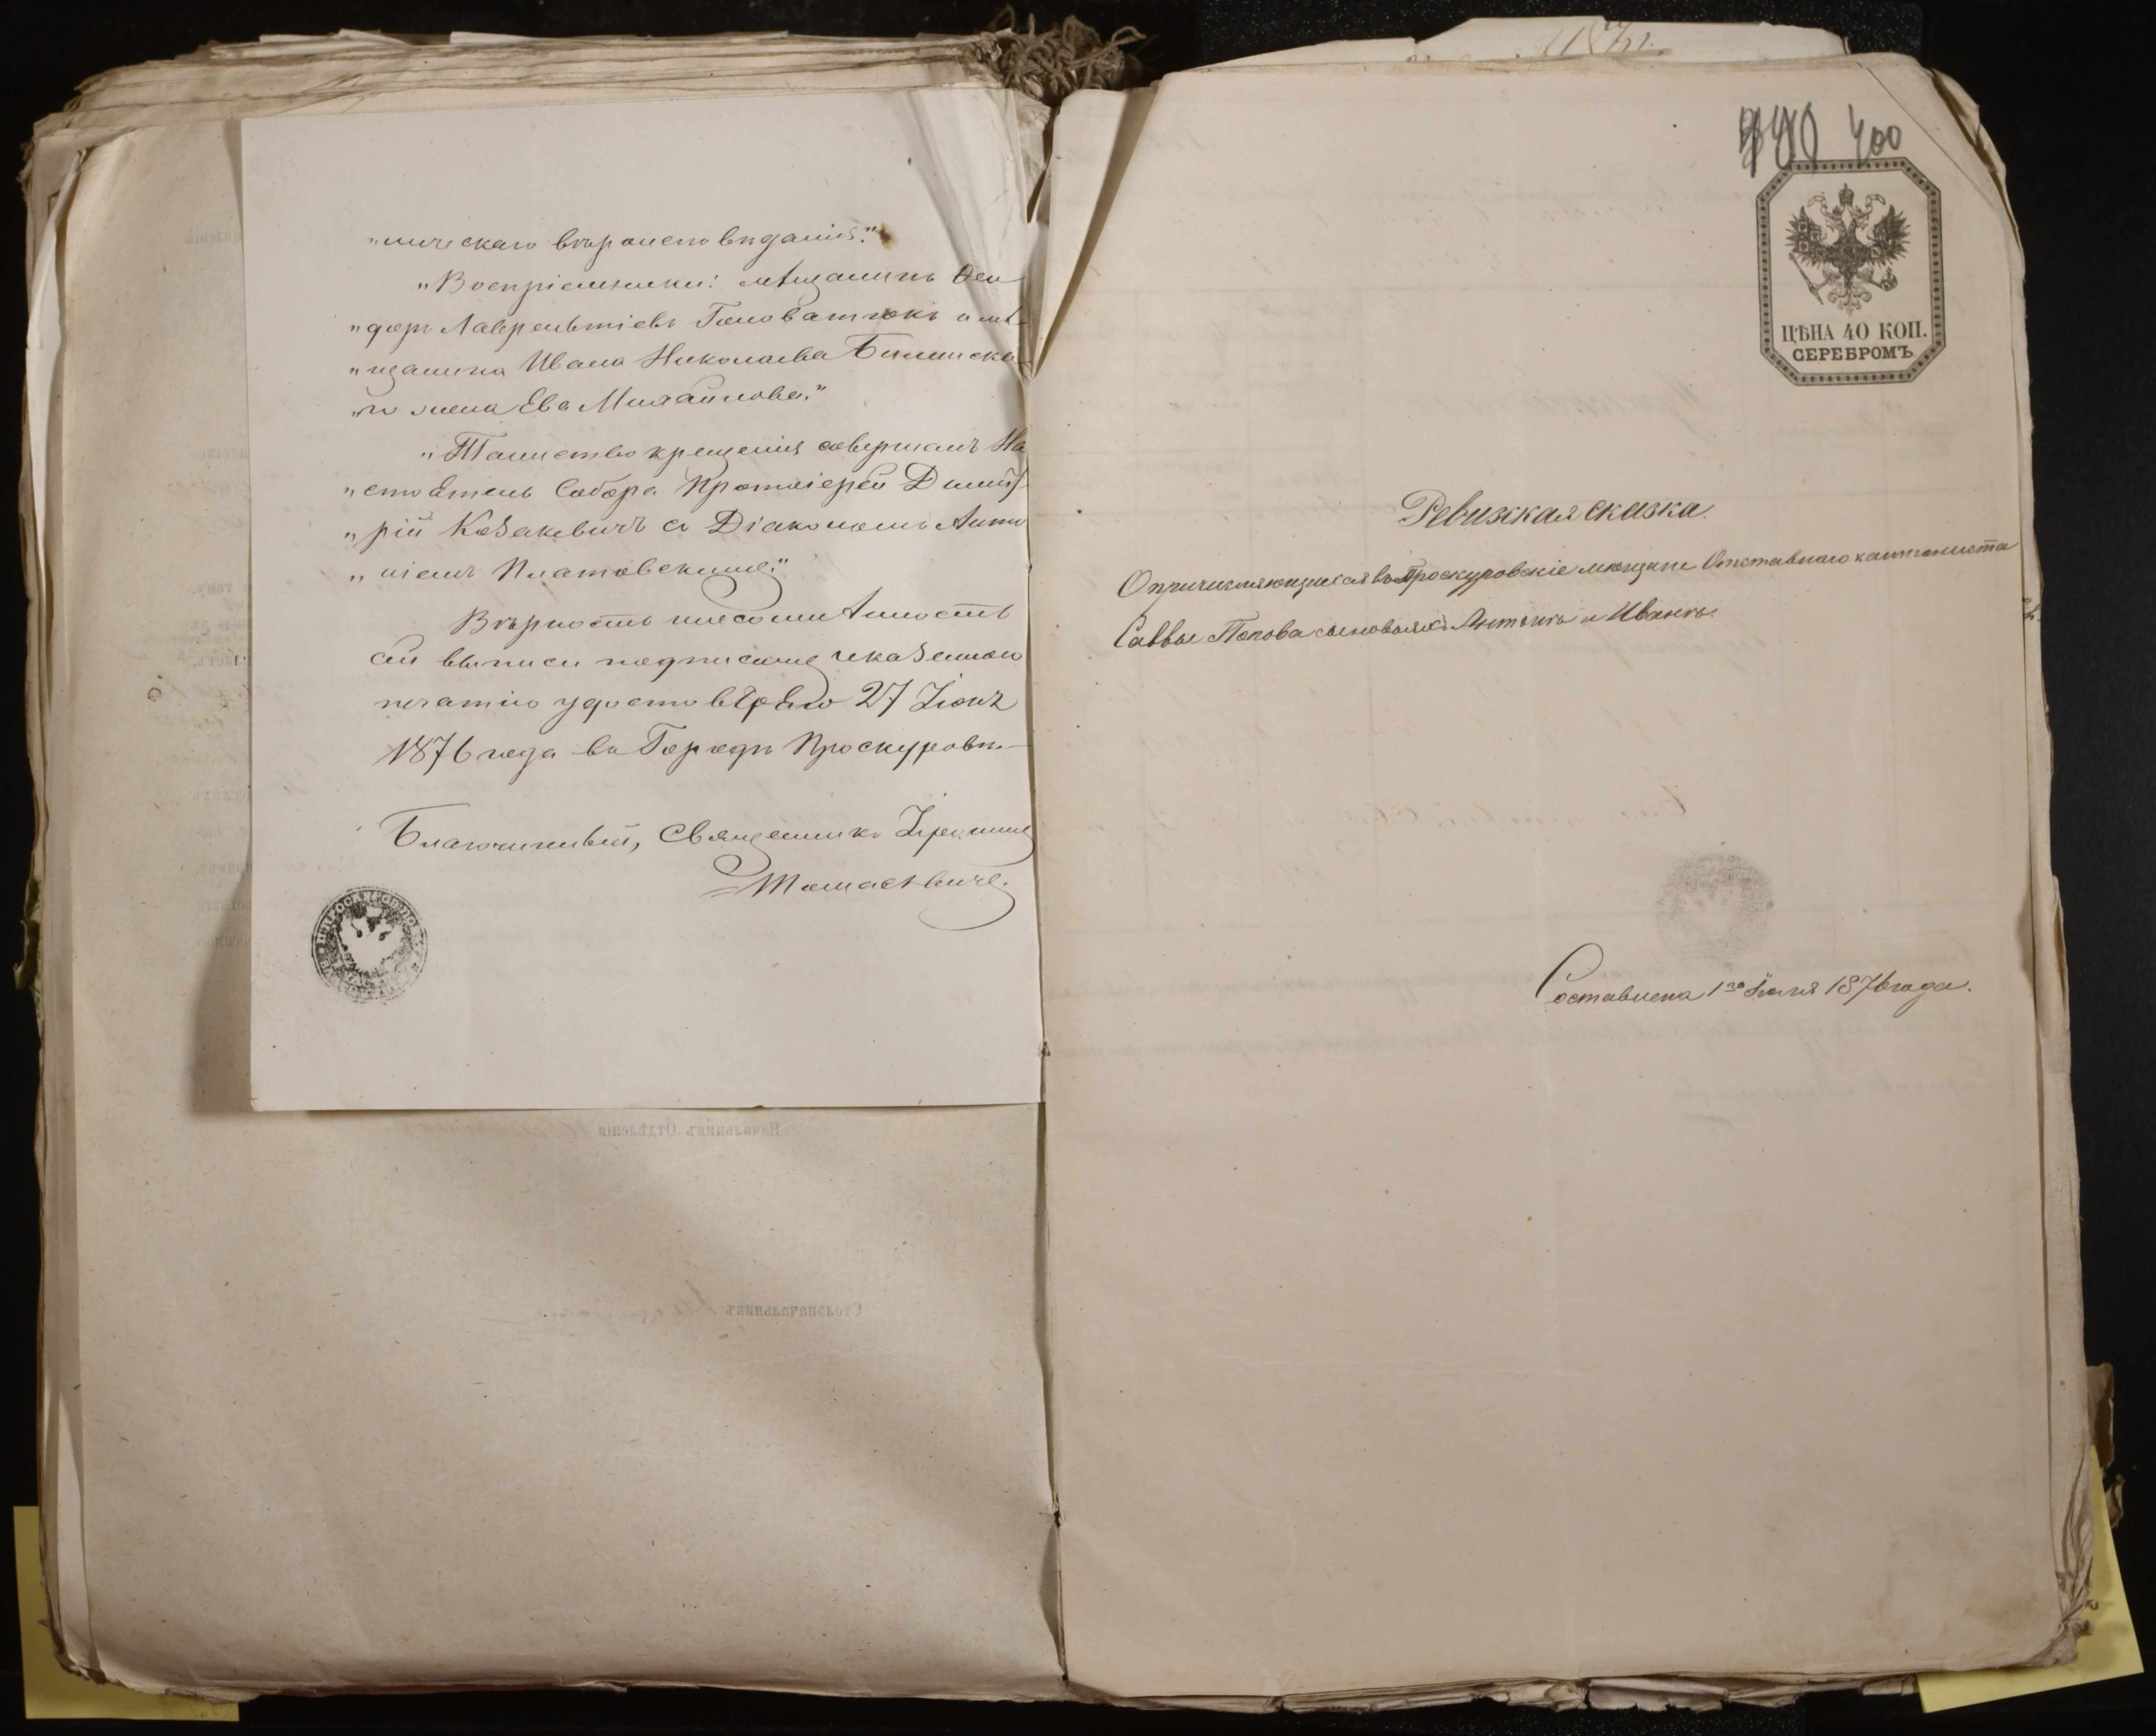 „лическаго вѣроисповѣданія.“
„Воспріемники: мѣщанинъ Ѳео
„доръ Лаврентіевъ Головатюкъ и мѣ
„щанина Ивана Николаева Билинска
„го жена Ева Михайлова.“
„Таинство крещенія совершалъ На
„стоятель Собора Протоіерей Димит
„рій Козакевичъ съ Діакономъ Анто
„ніемъ Платовскимъ.“
Вѣрность и несомнѣнность
сей выписи подписью и казенною
печатію удостовѣряю 27 Іюня
1876 года въ Городѣ Проскуровѣ.
Благочинный, Священникъ
Томасѣвичъ.
400
ЦѢНА 40 КОП.
СЕРЕБРОМЪ
Ревизская сказка.
О причисляющихся въ Проскуровскіе мѣщане Отставнаго кантониста
Саввы Попова сыновьяхъ Антонѣ и Иванѣ.
Составлена 1го Іюля 1876 года.
Начальникъ Отдѣленія
Столоначальникъ